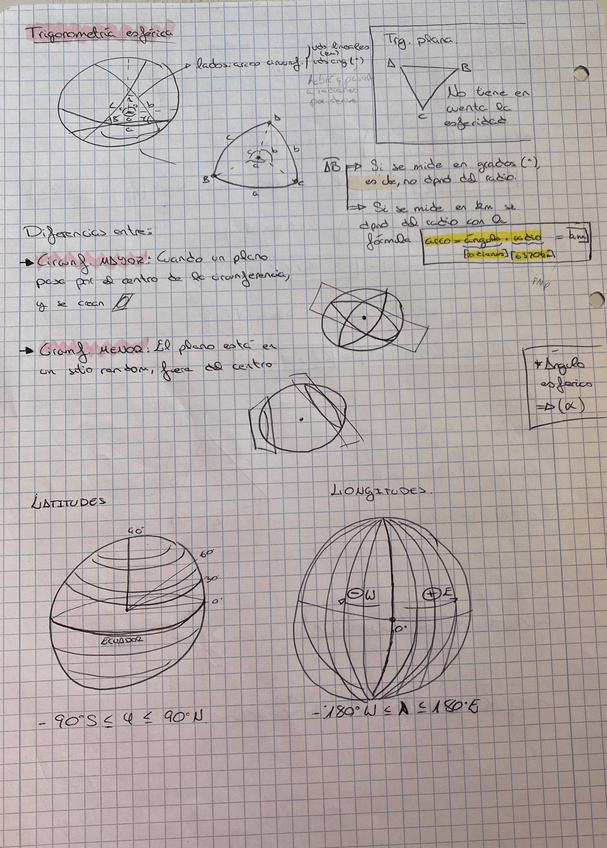 Trigonometría esférica
lados: arco circunf.
uds lineales
(km)
uds ang (°)
c b
B a
A
c b
b
B a C
Trg. plana.
A B
C
No tiene en
cuenta la
esfericidad
AB ⇒ Si se mide en grados (°),
es decir, no dpnd del radio.
⇒ Si se mide en km se
dpnd del radio con la
fórmula arco = ángulo · radio = km
[radianes] [6370km]
Diferencias entre:
→ Circunf. MAYOR: Cuando un plano
pasa por el centro de la circunferencia,
y se crean
→ Circunf. MENOR: El plano está en
un sitio random, fuera del centro
* Ángulo
esférico
⇒ (α)
LATITUDES
90°
60°
30°
0°
ECUADOR
- 90°S ≤ φ ≤ 90°N
LONGITUDES.
⊖ W ⊕ E
0°
- 180°W ≤ λ ≤ 180°E